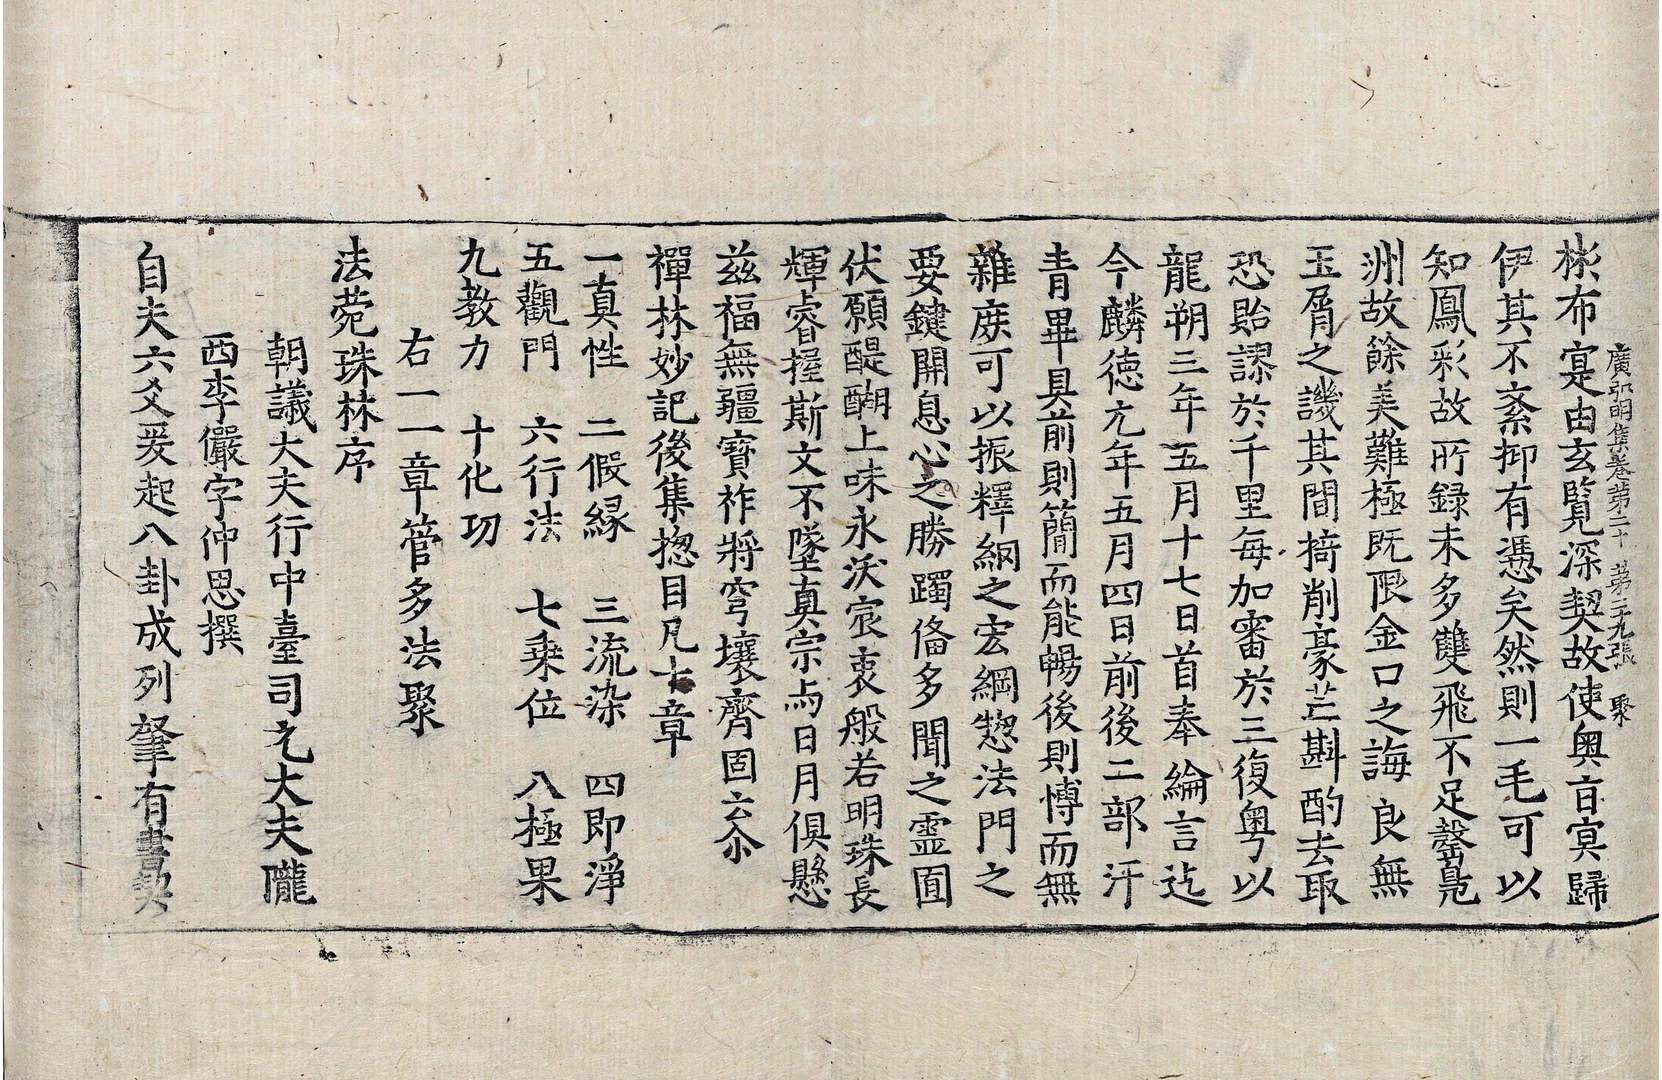 廣弘明集卷第二十 第二九張 聚
彬布寔由玄覽深契故使奥旨㝠歸
伊其不紊抑有憑矣然則一毛可以
知鳳彩故所録未多雙飛不足罄鳬
洲故餘美難極既限金口之誨良無
玉屑之譏其間掎削豪芒斟酌去取
恐貽謬於千里每加審於三復粤以
龍朔三年五月十七日首奉綸言迄
今麟德元年五月四日前後二部汗
青畢具前則簡而能暢後則博而無
雜庶可以振釋網之宏綱惣法門之
要鍵開息心之勝躅俻多聞之靈囿
伏願醍醐上味永沃宸衷般若明珠長
輝睿握斯文不墜真宗与日月俱懸
兹福無疆寶祚將穹壤齊固云尒
禪林妙記後集捴目凡十章
一真性 二假縁 三流染 四即淨
五觀門 六行法 七乗位 八極果
九教力 十化功
右一一章管多法聚
法菀珠林序
朝議大夫行中臺司元大夫隴
西李儼字仲思撰
自夫六爻爰起八卦成列肇有書契